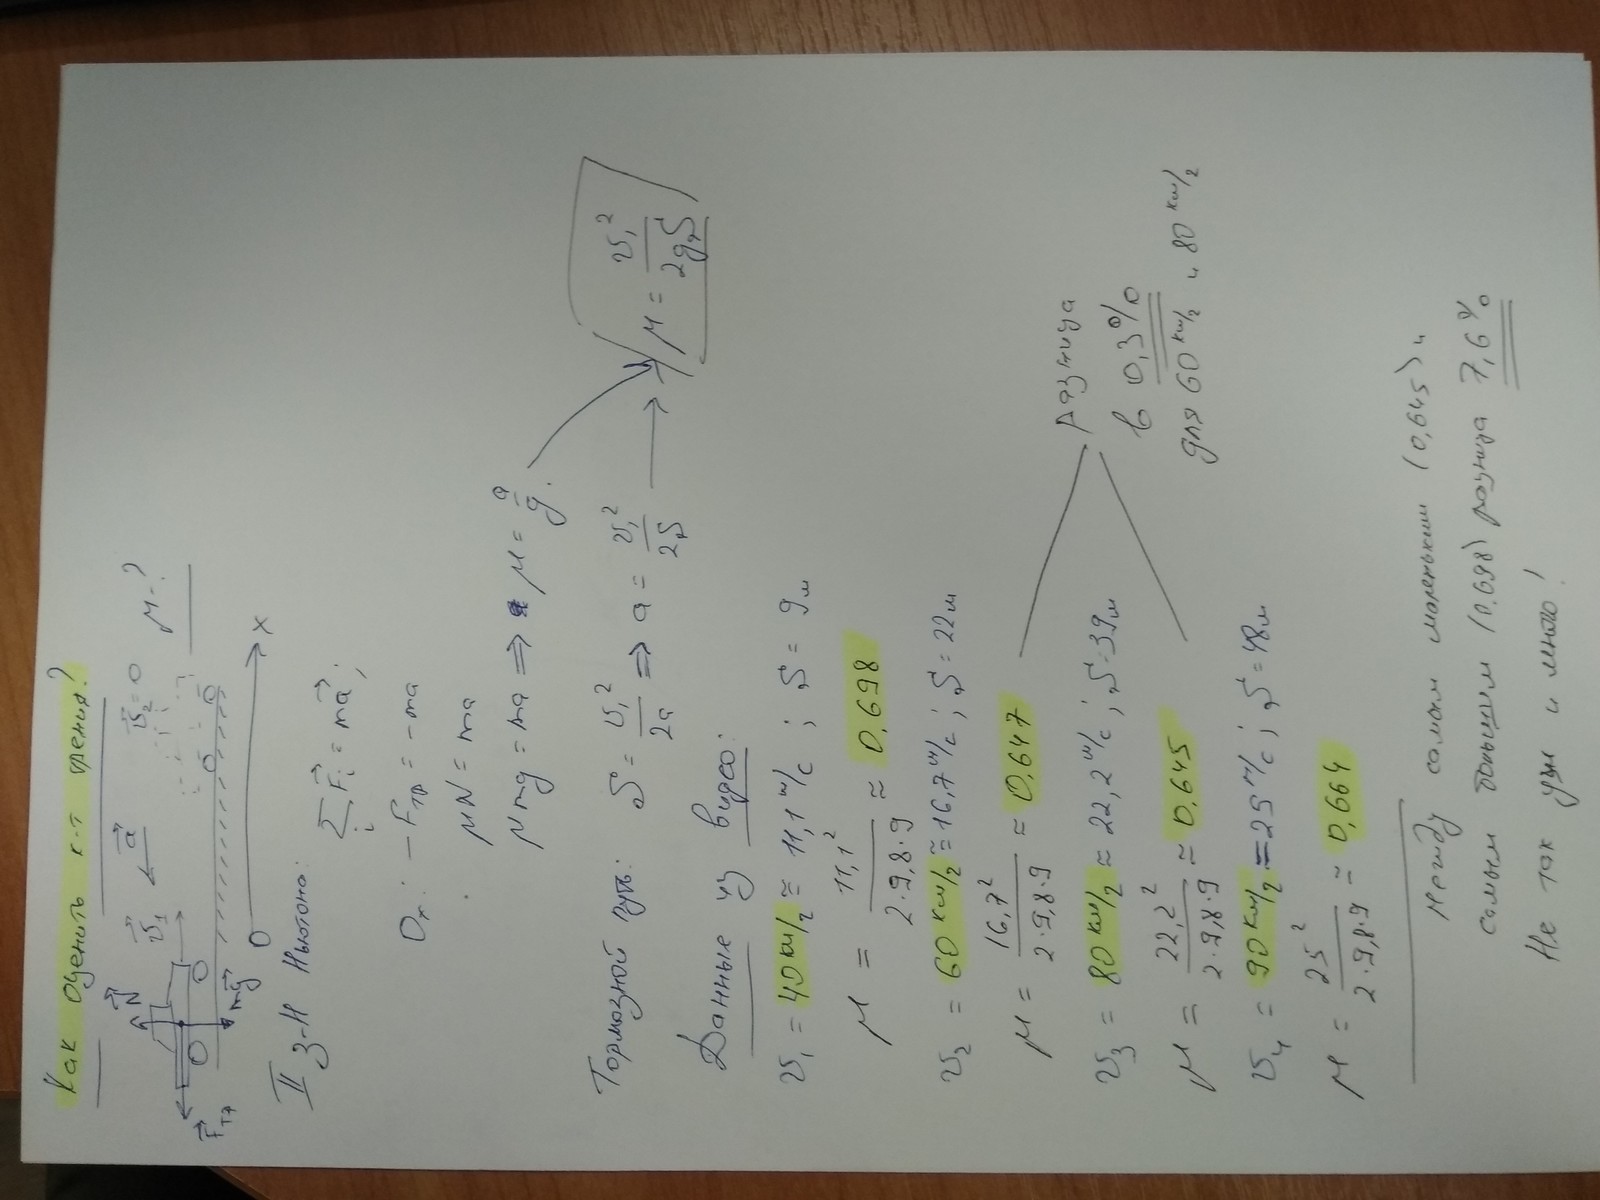 Как оценить к-т трения?
N
v₁
a
v₂ = 0
μ-?
Fтр
mg
0
x
II З-Н Ньютона:
∑Fᵢ = ma;
i
Oₓ: -Fтр = -ma
μN = ma
μmg = ma ⇒ μ = a/g.
Тормозной путь: S = v₁²/2a ⇒ a = v₁²/2S → μ = v₁²/2gS
Данные из видео:
v₁ = 40 км/ч ≈ 11,1 м/с ; S = 9м
μ = 11,1²/2·9,8·9 ≈ 0,698
v₂ = 60 км/ч ≈ 16,7 м/с ; S = 22м
μ = 16,7²/2·9,8·9 ≈ 0,647
v₃ = 80 км/ч ≈ 22,2 м/с ; S = 39м
μ = 22,2²/2·9,8·9 ≈ 0,645
v₄ = 90 км/ч = 25 м/с ; S = 48м
μ = 25²/2·9,8·9 ≈ 0,664
разница
в 0,3%
для 60 км/ч и 80 км/ч
между самым маленьким (0,645) и
самым большим (0,698) разница 7,6%
Не так уж и много!